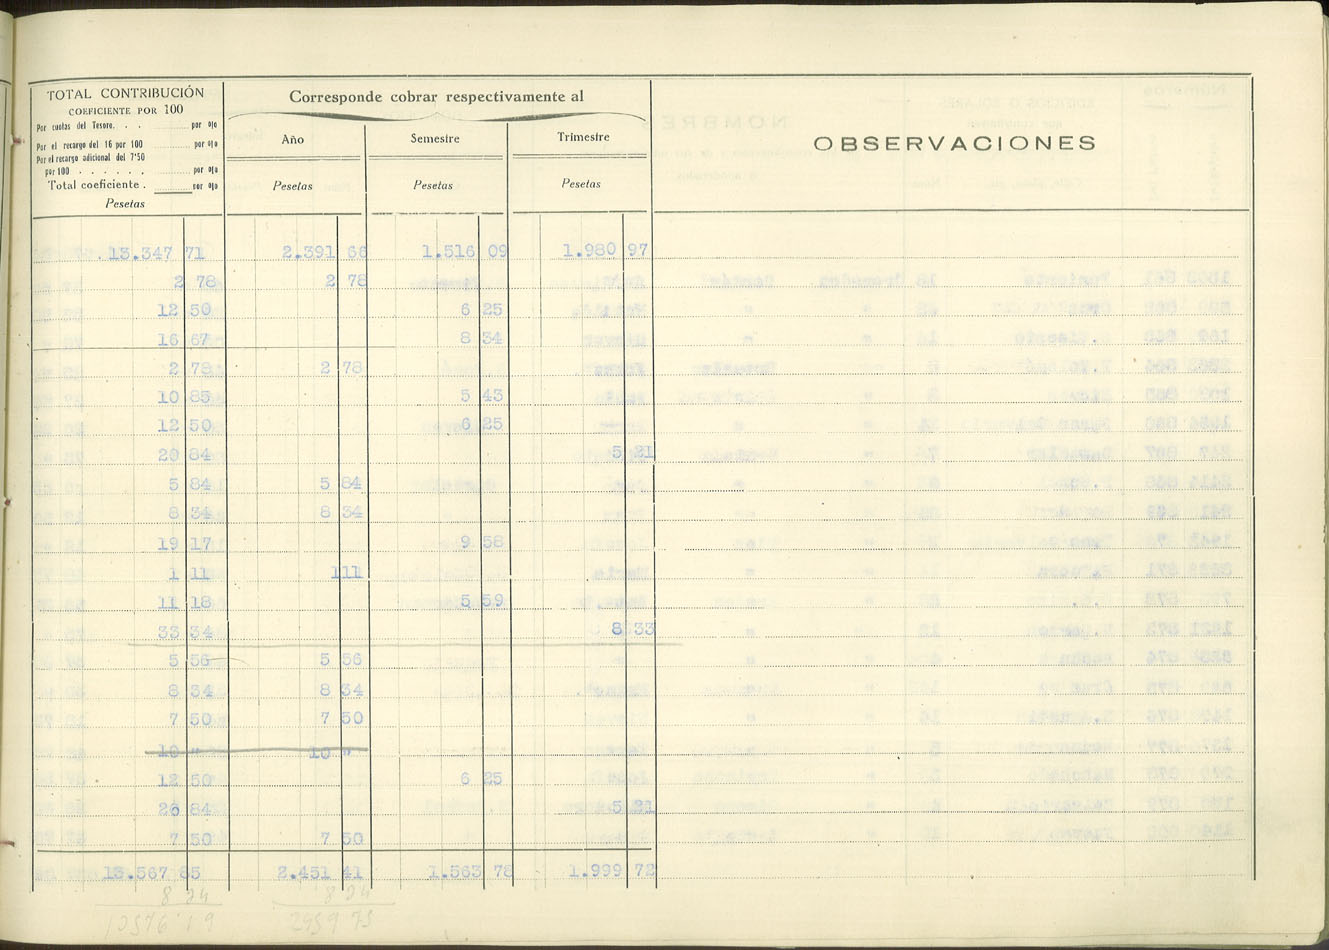 TOTAL CONTRIBUCIÓN
COEFICIENTE POR 100
Por cuotas del Tesoro. . . por o|o
Por el recargo del 16 por 100 por o|o
Por el recargo adicional del 7'50
por 100 . . . . . . por o|o
Total coeficiente . por o|o
Pesetas
Corresponde cobrar respectivamente al
Año Semestre Trimestre
Pesetas Pesetas Pesetas
OBSERVACIONES
13.347 71 2.391 66 1.516 09 1.980 97
2 78 2 78
12 50 6 25
16 67 8 34
2 78 2 78
10 85 5 43
12 50 6 25
20 84 5 21
5 84 5 84
8 34 8 34
19 17 9 58
1 11 1 11
11 18 5 59
33 34 8 33
5 56 5 56
8 34 8 34
7 50 7 50
10 " 10 "
12 50 6 25
20 84 5 21
7 50 7 50
13.567 85 2.451 41 1.563 78 1.999 72